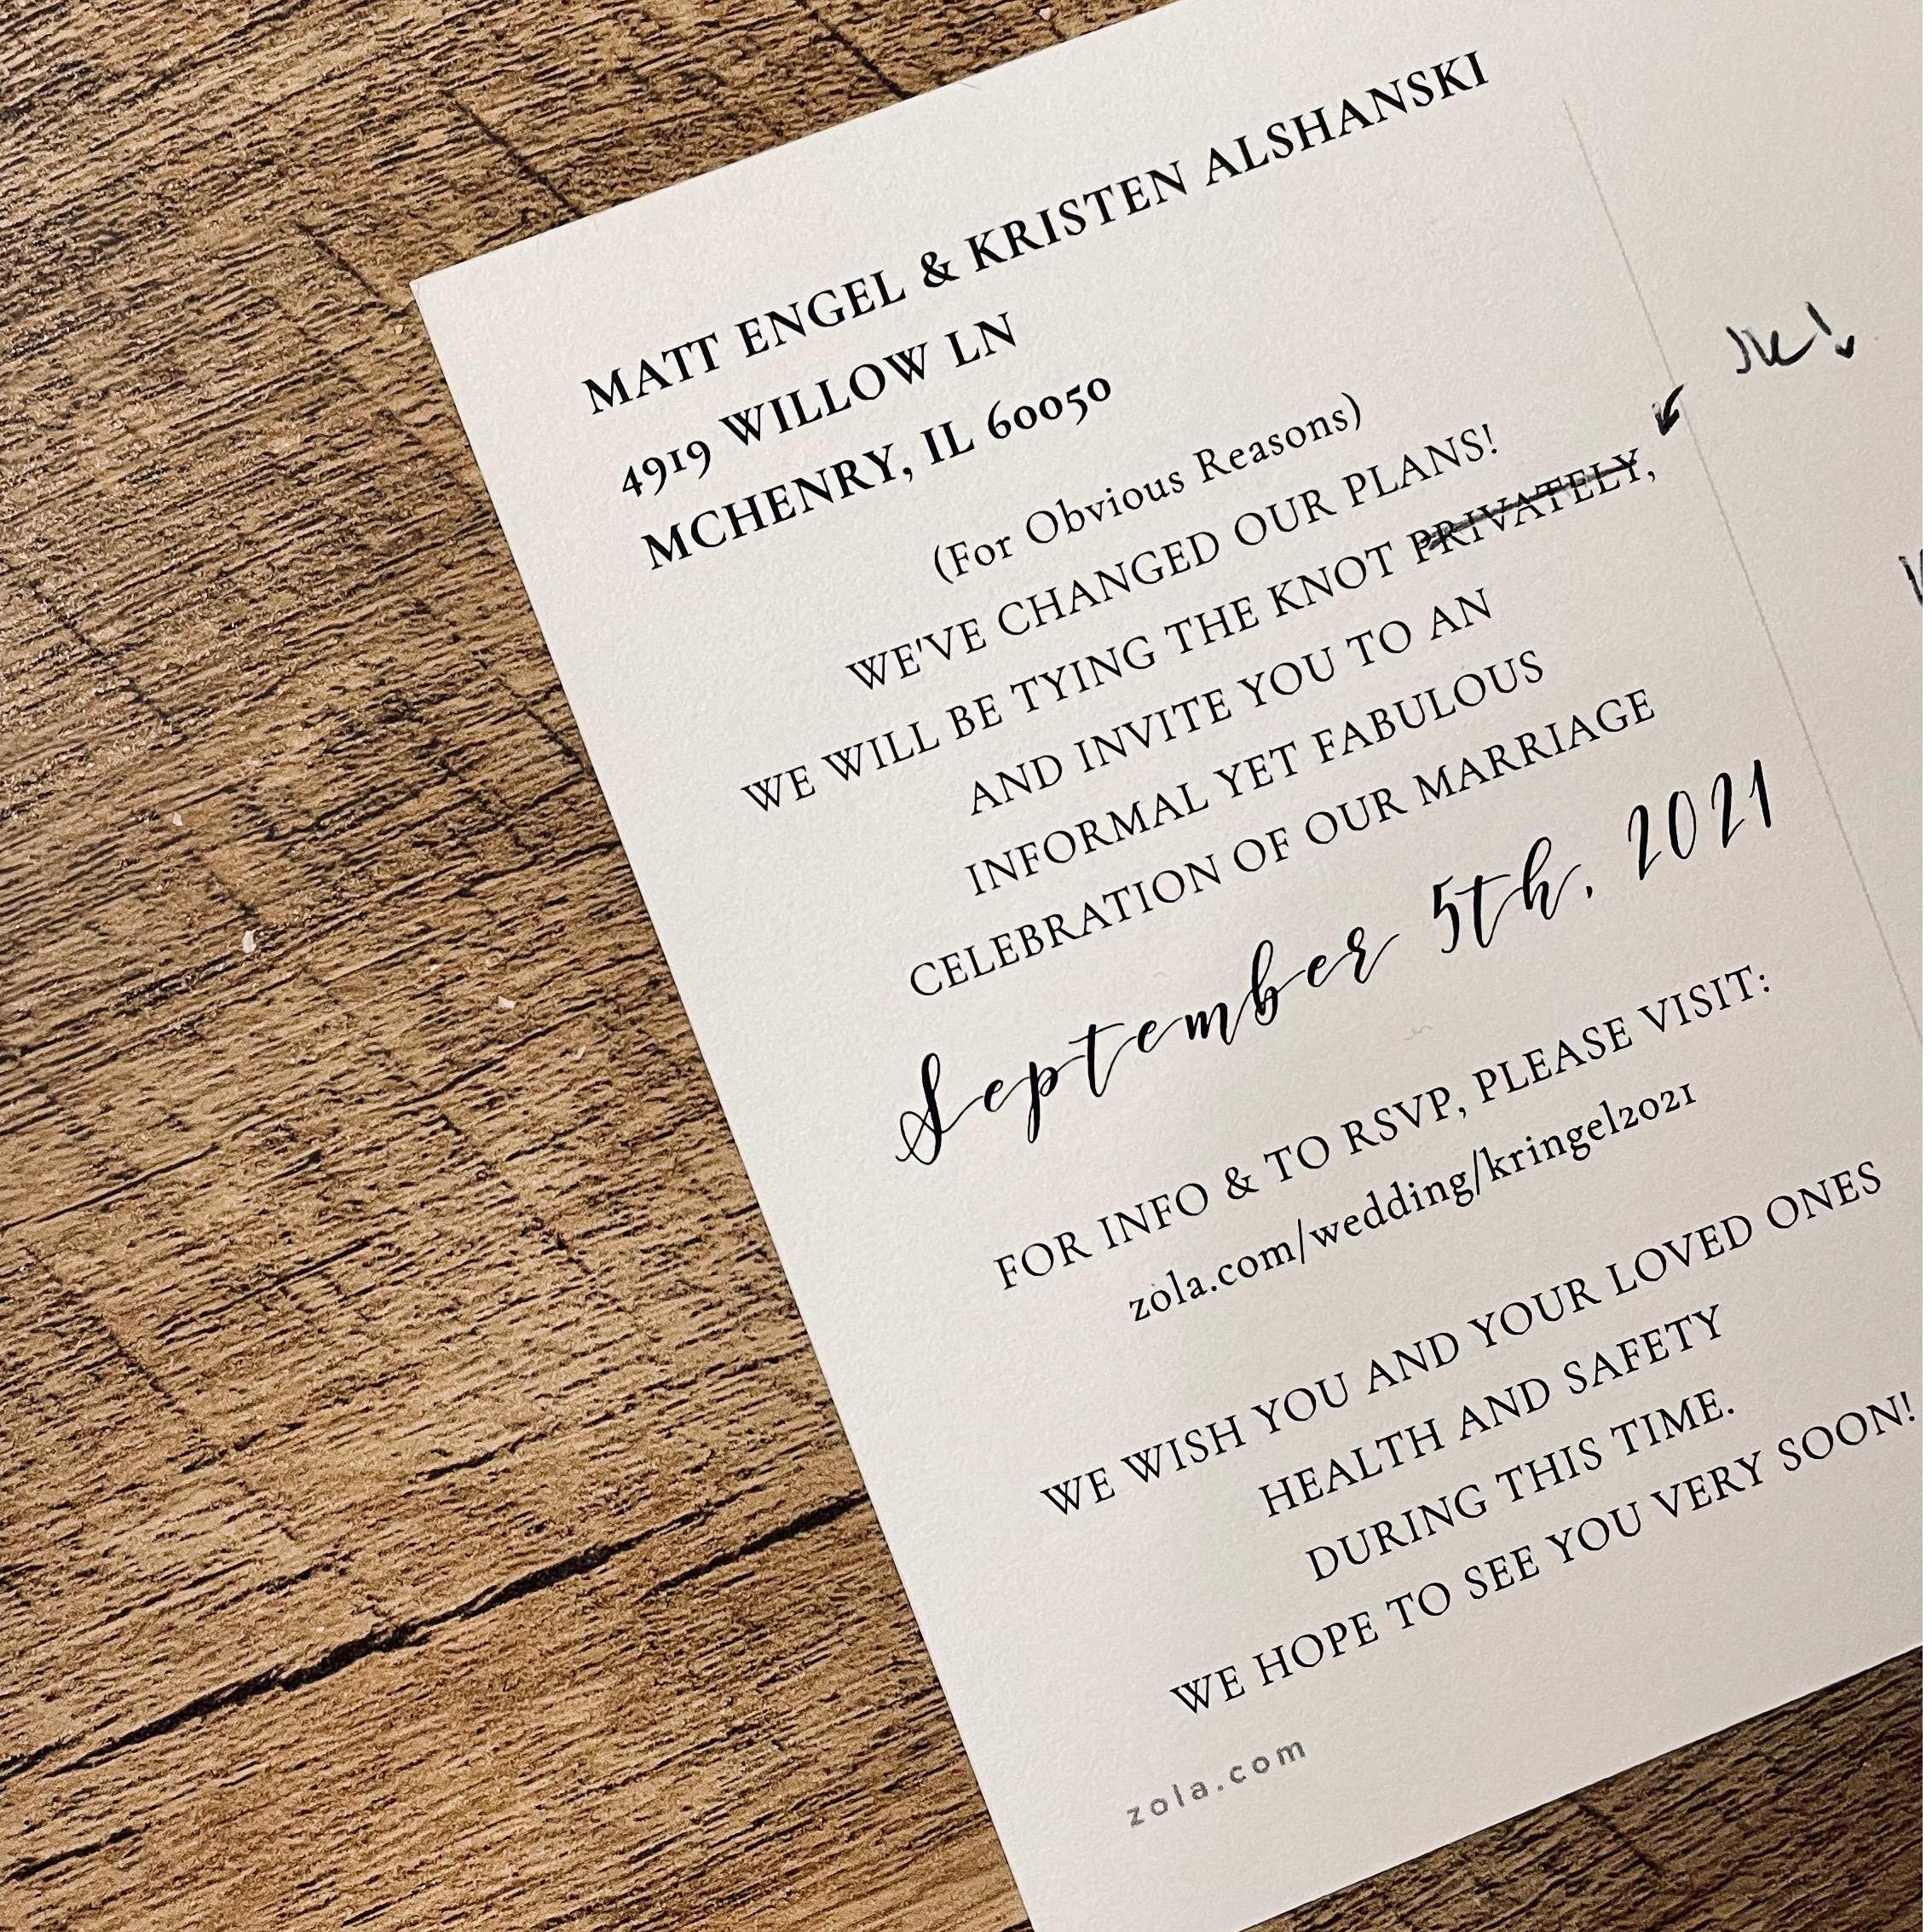 MATT ENGEL & KRISTEN ALSHANSKI
4919 WILLOW LN
MCHENRY, IL 60050
(For Obvious Reasons)
WE'VE CHANGED OUR PLANS!
JK!
WE WILL BE TYING THE KNOT PRIVATELY,
AND INVITE YOU TO AN
INFORMAL YET FABULOUS
CELEBRATION OF OUR MARRIAGE
September 5th, 2021
FOR INFO & TO RSVP, PLEASE VISIT:
zola.com/wedding/kringel2021
WE WISH YOU AND YOUR LOVED ONES
HEALTH AND SAFETY
DURING THIS TIME.
WE HOPE TO SEE YOU VERY SOON!
zola.com